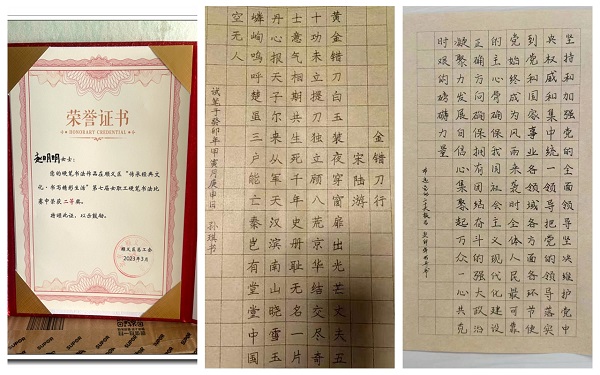 荣誉证书
HONORARY CREDENTIAL
赵明明女士：
您的硬笔书法作品在顺义区“传承经典文
化·书写精彩生活”第七届女职工硬笔书法比
赛中荣获 二等奖。
特颁此证，以资鼓励。
顺义区总工会
2023年3月
SUPOR
金错刀行
宋陆游
黄金错刀白玉装夜穿窗扉出光芒丈夫五
十功未立提刀独立顾八荒京华结交尽奇
士意气相期共生死千年史册耻无名一片
丹心报天子尔来从军天汉滨南山晓雪玉
嶙峋呜呼楚虽三户能亡秦岂有堂堂中国
空无人
试笔于癸卯年甲寅月庚申日 孙琪书
坚持和加强党的全面领导坚决维护党中
央权威和集中统一领导把党的领导落实
到党和国家事业各领域各方面各环节使
党始终成为风雨来袭时全体人民最可靠
的主心骨确保我国社会主义现代化建设
正确方向确保拥有团结奋斗的强大政治
凝聚力发展自信心集聚起万众一心共克
时艰的磅礴力量